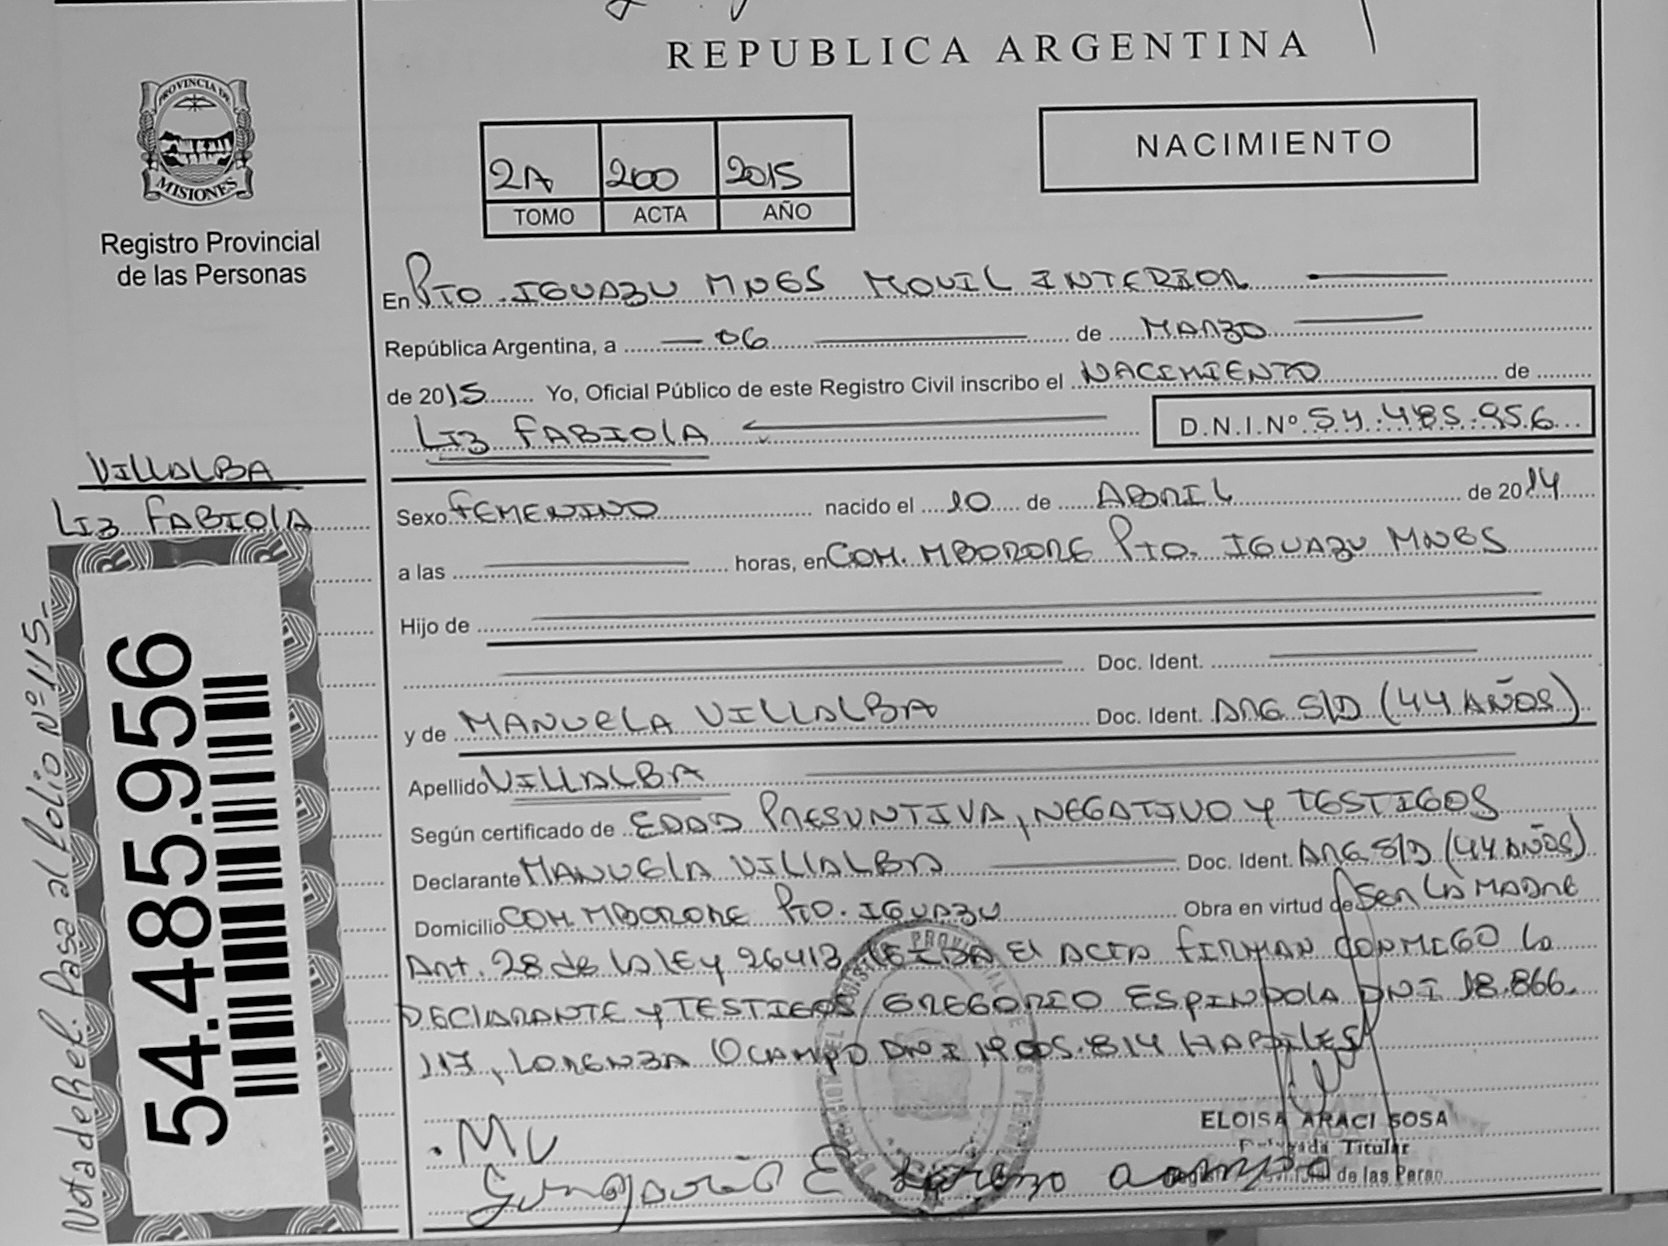 REPUBLICA ARGENTINA
PROVINCIA DE
MISIONES
Registro Provincial
de las Personas
2A 200 2015
TOMO ACTA AÑO
NACIMIENTO
En PTO. IGUAZU MNES MOVIL INTERIOR
República Argentina, a 06 de MARZO
de 2015 Yo, Oficial Público de este Registro Civil inscribo el NACIMIENTO de
LIZ FABIOLA D.N.I.Nº 54.485.956
VILLALBA
LIZ FABIOLA
Sexo FEMENINO nacido el 10 de ABRIL de 2014
a las horas, en COM. MBORORE PTO. IGUAZU MNES
Hijo de
Doc. Ident.
y de MANUELA VILLALBA Doc. Ident. ARG S/D (44 AÑOS)
Apellido VILLALBA
Según certificado de EDAD PRESUNTIVA, NEGATIVO Y TESTIGOS
Declarante MANUELA VILLALBA Doc. Ident. ARG S/D (44 AÑOS)
Domicilio COM MBORORE PTO. IGUAZU Obra en virtud de SER LA MADRE
ART. 28 de la LEY 26413 LEIDA El ACTA FIRMAN CONMIGO LA
DECLARANTE Y TESTIGOS GREGORIO ESPINDOLA DNI 18.866.
117, LORENZA OCAMPO DNI 19.005.814 HABILES
54.485.956
Nota de Ref. Pasa al folio Nº 115.-
. MV
ELOISA ARACI SOSA
Titular
de las Perso